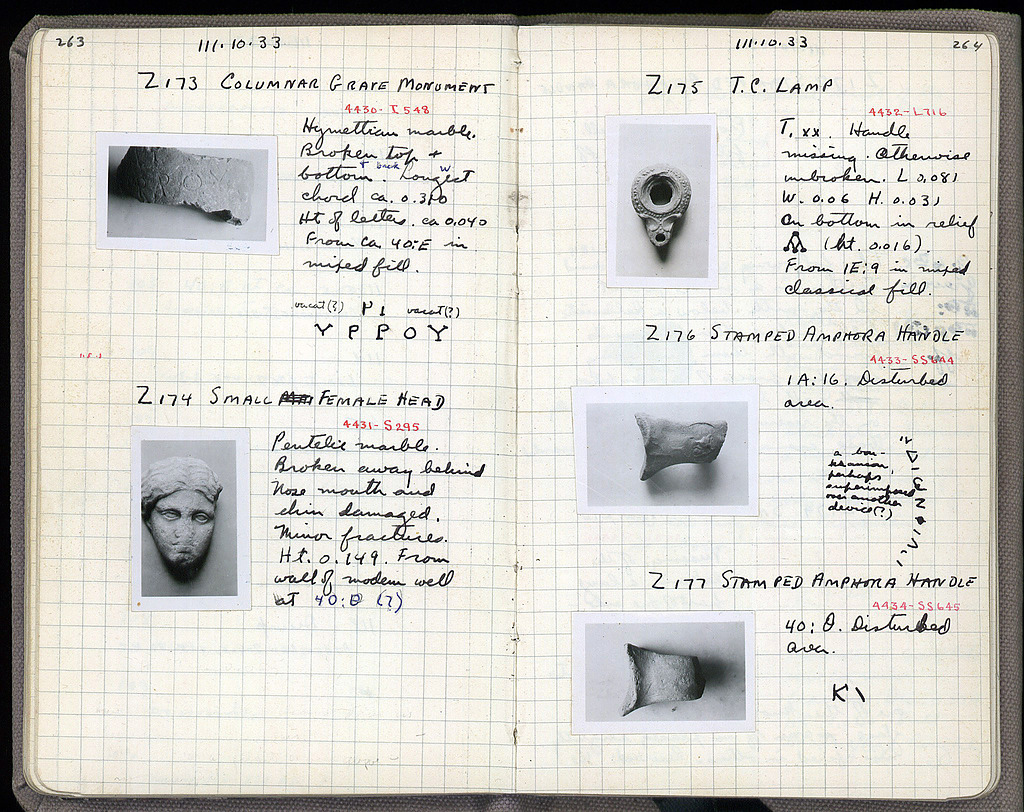 263
111·10·33
Z173 COLUMNAR GRAVE MONUMENT
4430-I 548
Hymettian marble.
Broken top +
bottom. + back Longest
chord ca. 0.310
Ht of letters. ca 0.040
From ca 40:E in
mixed fill.
vacat(?) Ρ Ι vacat(?)
Υ Ρ Ρ Ο Υ
Z174 SMALL FEMALE HEAD
4431-S295
Pentelic marble.
Broken away behind
Nose mouth and
chin damaged.
Minor fractures.
Ht. 0.149. From
wall of modern well
at 40:Θ (?)
111.10.33
264
Z175 T.C. LAMP
4432-L716
T. xx. Handle
missing. Otherwise
unbroken. L 0.081
W. 0.06 H. 0.031
On bottom in relief
(ht. 0.016).
From 1E:9 in mixed
classical fill.
Z176 STAMPED AMPHORA HANDLE
4433-SS644
1A:16. Disturbed
area.
a bou-
kranion,
perhaps
superimposed
over another
device(?)
Z177 STAMPED AMPHORA HANDLE
4434-SS645
40:Θ. Disturbed
area.